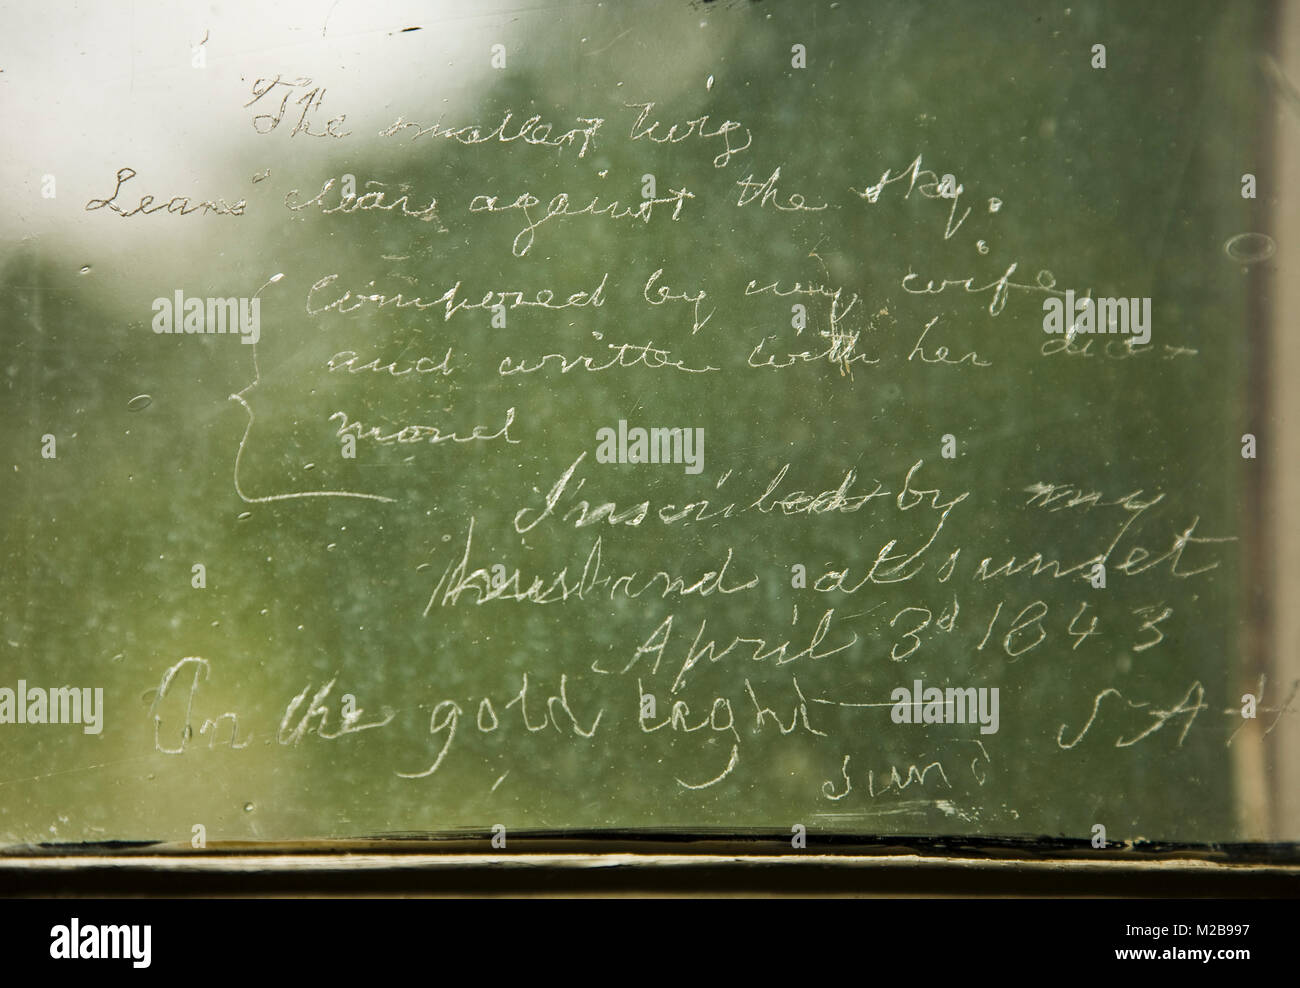 The smallest twig
Leans clear against the sky.
Composed by my wife,
and written with her dia-
mond
Inscribed by my
husband at sunset
April 3d 1843
In the gold light — S A H
alamy
Image ID: M2B997
www.alamy.com